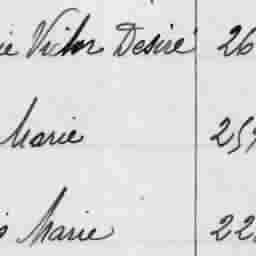 ie Victor Desiré 26
Marie 25
s Marie 22